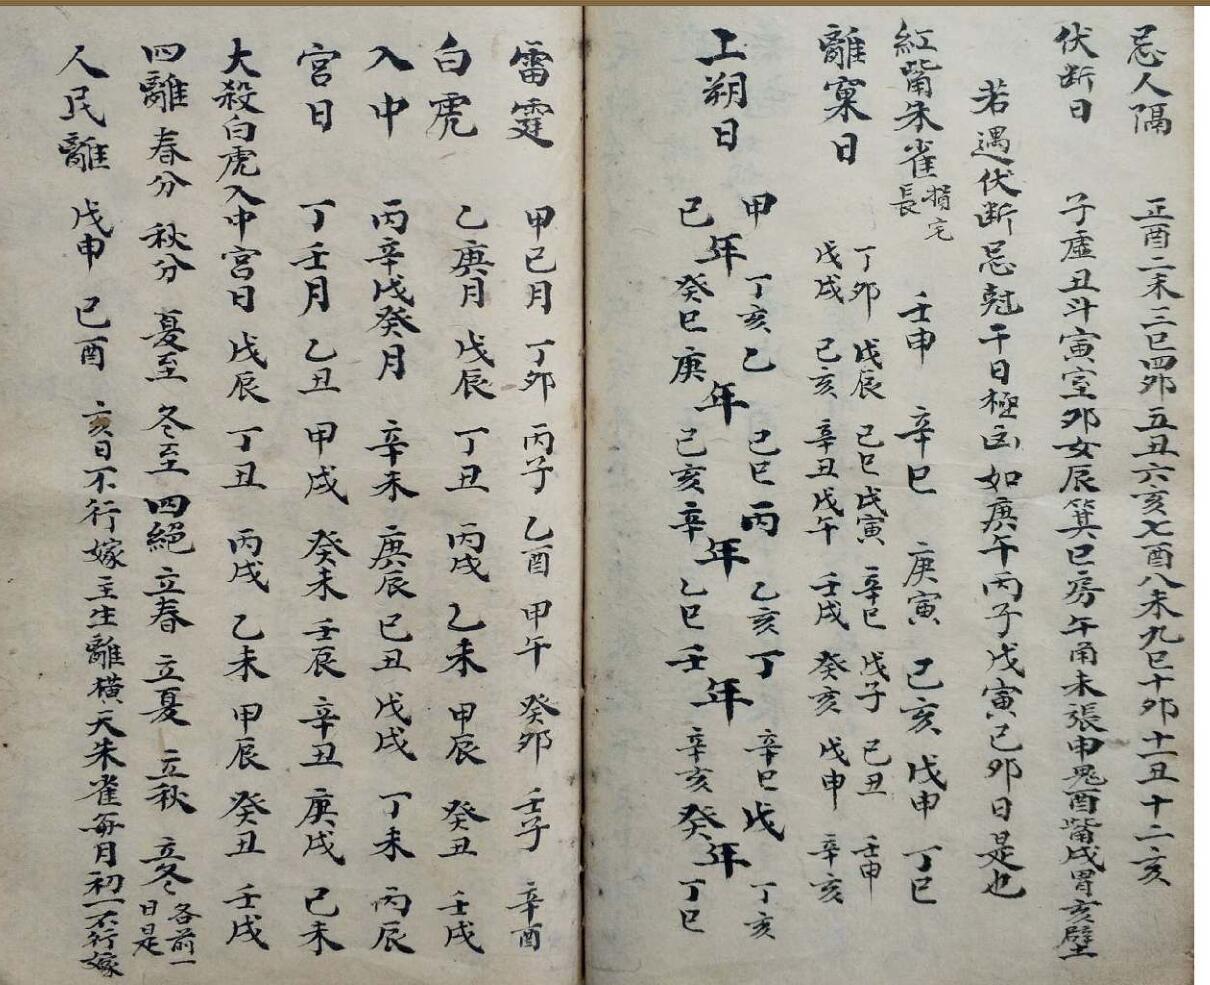 忌人隔 正酉二未三巳四卯五丑六亥七酉八未九巳十卯十一丑十二亥
伏断日 子虚丑斗寅室卯女辰箕巳房午角未張申鬼酉觜戌胃亥壁
若遇伏断忌尅干日極凶如庚午丙子戊寅己卯日是也
紅觜朱雀損宅長 壬申 辛巳 庚寅 己亥 戊申 丁巳
離窠日 丁卯 戊辰 己巳 戊寅 辛巳 戊子 己丑 壬申
戊戌 己亥 辛丑 戊午 壬戌 癸亥 戊申 辛亥
上朔日 甲己年 丁亥 癸巳 乙庚年 己巳 己亥 丙辛年 乙亥 乙巳 丁壬年 辛巳 辛亥 戊癸年 丁亥 丁巳
雷霆 甲己月 丁卯 丙子 乙酉 甲午 癸卯 壬子 辛酉
白虎 乙庚月 戊辰 丁丑 丙戌 乙未 甲辰 癸丑 壬戌
入中 丙辛戊癸月 辛未 庚辰 己丑 戊戌 丁未 丙辰
宮日 丁壬月 乙丑 甲戌 癸未 壬辰 辛丑 庚戌 己未
大殺白虎入中宮日 戊辰 丁丑 丙戌 乙未 甲辰 癸丑 壬戌
四離 春分 秋分 夏至 冬至 四絕 立春 立夏 立秋 立冬 各前一日是
人民離 戊申 己酉 亥日不行嫁主生離横天朱雀每月初一不行嫁